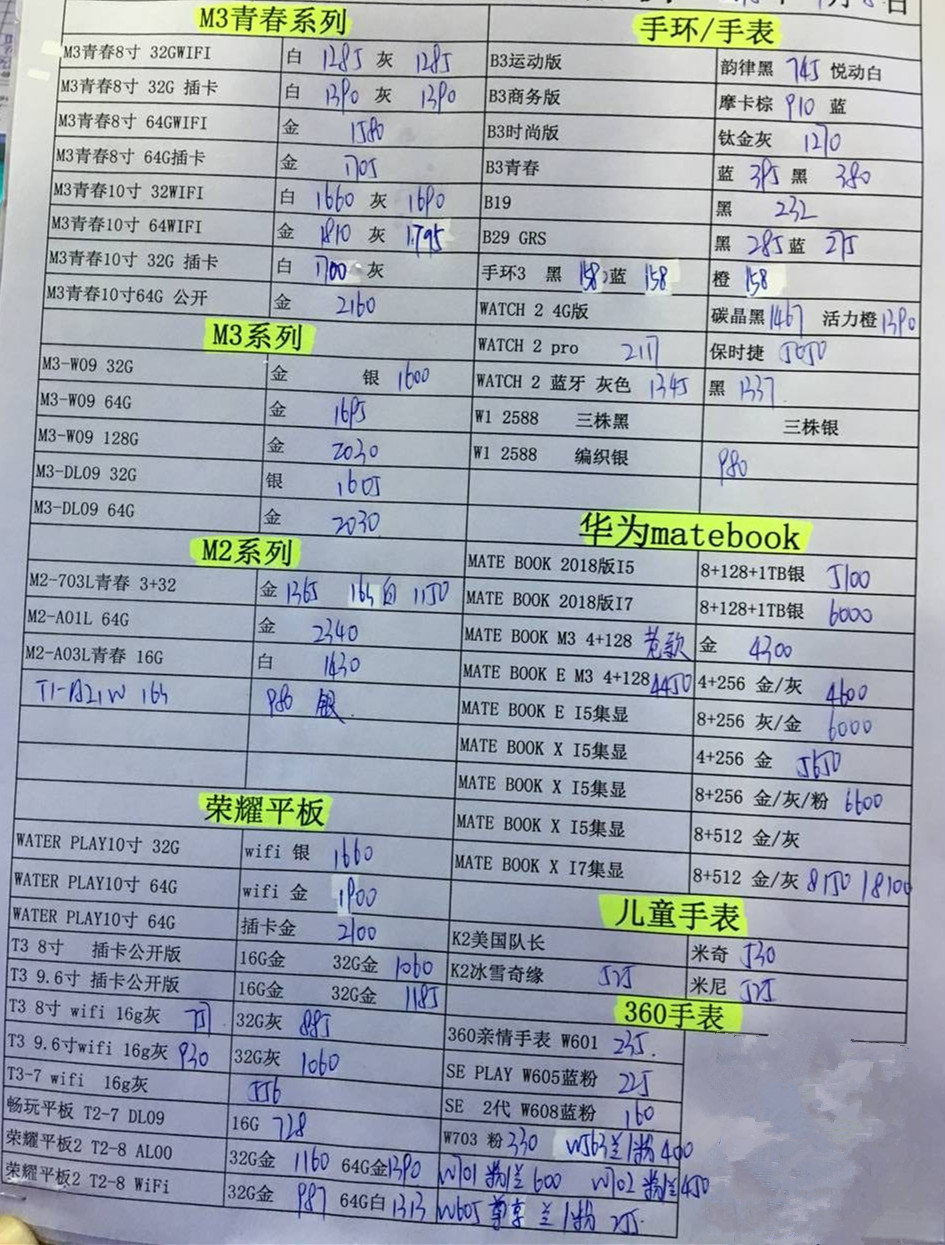 日
M3青春系列
M3青春8寸 32GWIFI 白 1285 灰 1285
M3青春8寸 32G 插卡 白 1390 灰 1390
M3青春8寸 64GWIFI 金 1580
M3青春8寸 64G插卡 金 1705
M3青春10寸 32WIFI 白 1660 灰 1690
M3青春10寸 64WIFI 金 1810 灰 1795
M3青春10寸 32G 插卡 白 1700 灰
M3青春10寸64G 公开 金 2160
M3系列
M3-W09 32G 金 银 1600
M3-W09 64G 金 1695
M3-W09 128G 金 2030
M3-DL09 32G 银 1605
M3-DL09 64G 金 2030
M2系列
M2-703L青春 3+32 金 1365 16G 白 1150
M2-A01L 64G 金 2340
M2-A03L青春 16G 白 1430
T1-A21W 16G 980 银
荣耀平板
WATER PLAY10寸 32G wifi 银 1660
WATER PLAY10寸 64G wifi 金 1900
WATER PLAY10寸 64G 插卡金 2100
T3 8寸 插卡公开版 16G金 32G金 1060
T3 9.6寸 插卡公开版 16G金 32G金 1185
T3 8寸 wifi 16g灰 32G灰 885
T3 9.6寸wifi 16g灰 930 32G灰 1060
T3-7 wifi 16g灰 556
畅玩平板 T2-7 DL09 16G 728
荣耀平板2 T2-8 AL00 32G金 1160 64G金1390
荣耀平板2 T2-8 WiFi 32G金 987 64G白 1313
手环/手表
B3运动版 韵律黑 745 悦动白
B3商务版 摩卡棕 910 蓝
B3时尚版 钛金灰 1270
B3青春 蓝 395 黑 380
B19 黑 232
B29 GRS 黑 285 蓝 275
手环3 黑 158 蓝 158 橙 158
WATCH 2 4G版 碳晶黑 1467 活力橙 1390
WATCH 2 pro 2117 保时捷 5050
WATCH 2 蓝牙 灰色 1345 黑 1337
W1 2588 三株黑 三株银
W1 2588 编织银 980
华为matebook
MATE BOOK 2018版I5 8+128+1TB银 5100
MATE BOOK 2018版I7 8+128+1TB银 6000
MATE BOOK M3 4+128 老款 金 4300
MATE BOOK E M3 4+128 4450 4+256 金/灰 4600
MATE BOOK E I5集显 8+256 灰/金 6000
MATE BOOK X I5集显 4+256 金 5650
MATE BOOK X I5集显 8+256 金/灰/粉 6600
MATE BOOK X I5集显 8+512 金/灰
MATE BOOK X I7集显 8+512 金/灰 8150 /8100
儿童手表
K2美国队长 米奇 530
K2冰雪奇缘 525 米尼 525
360手表
360亲情手表 W601 235
SE PLAY W605蓝粉 225
SE 2代 W608蓝粉 160
W703 粉 330 W563兰/粉 400
W701 粉/兰 600 W702 粉/兰 450
W605 尊享 兰/粉 255